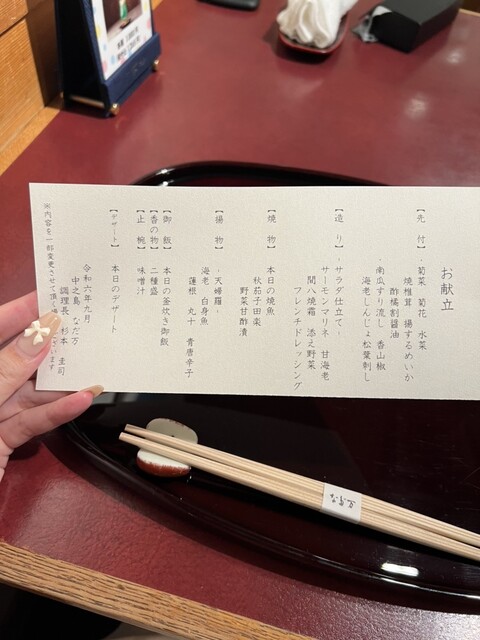 お献立
【先付】・菊菜 菊花 水菜
焼椎茸 揚するめいか
酢橘割醤油
・南瓜すり流し 香山椒
海老しんじょ松葉刺し
【造り】・サラダ仕立て・
サーモンマリネ 甘海老
間八焼霜 添え野菜
フレンチドレッシング
【焼物】本日の焼魚
秋茄子田楽
野菜甘酢漬
【揚物】・天婦羅・
海老 白身魚
蓮根 丸十 青唐辛子
【御飯】本日の釜炊き御飯
【香の物】二種盛
【止椀】味噌汁
【デザート】本日のデザート
令和六年九月
中之島 なだ万
調理長 杉本 圭司
※内容を一部変更させて頂く
います
なだ万